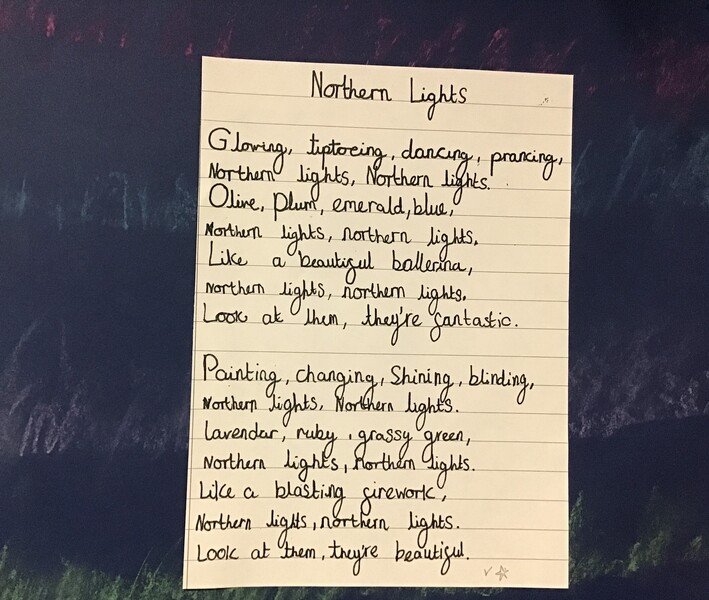 Northern Lights
Glowing, tiptoeing, dancing, prancing,
Northern lights, Northern lights.
Olive, plum, emerald, blue,
Northern lights, northern lights.
Like a beautiful ballerina,
Northern lights, northern lights.
Look at them, they're fantastic.
Painting, changing, Shining, blinding,
Northern lights, Northern lights.
Lavendar, ruby, grassy green,
Northern lights, northern lights.
Like a blasting firework,
Northern lights, northern lights.
Look at them, they're beautiful.